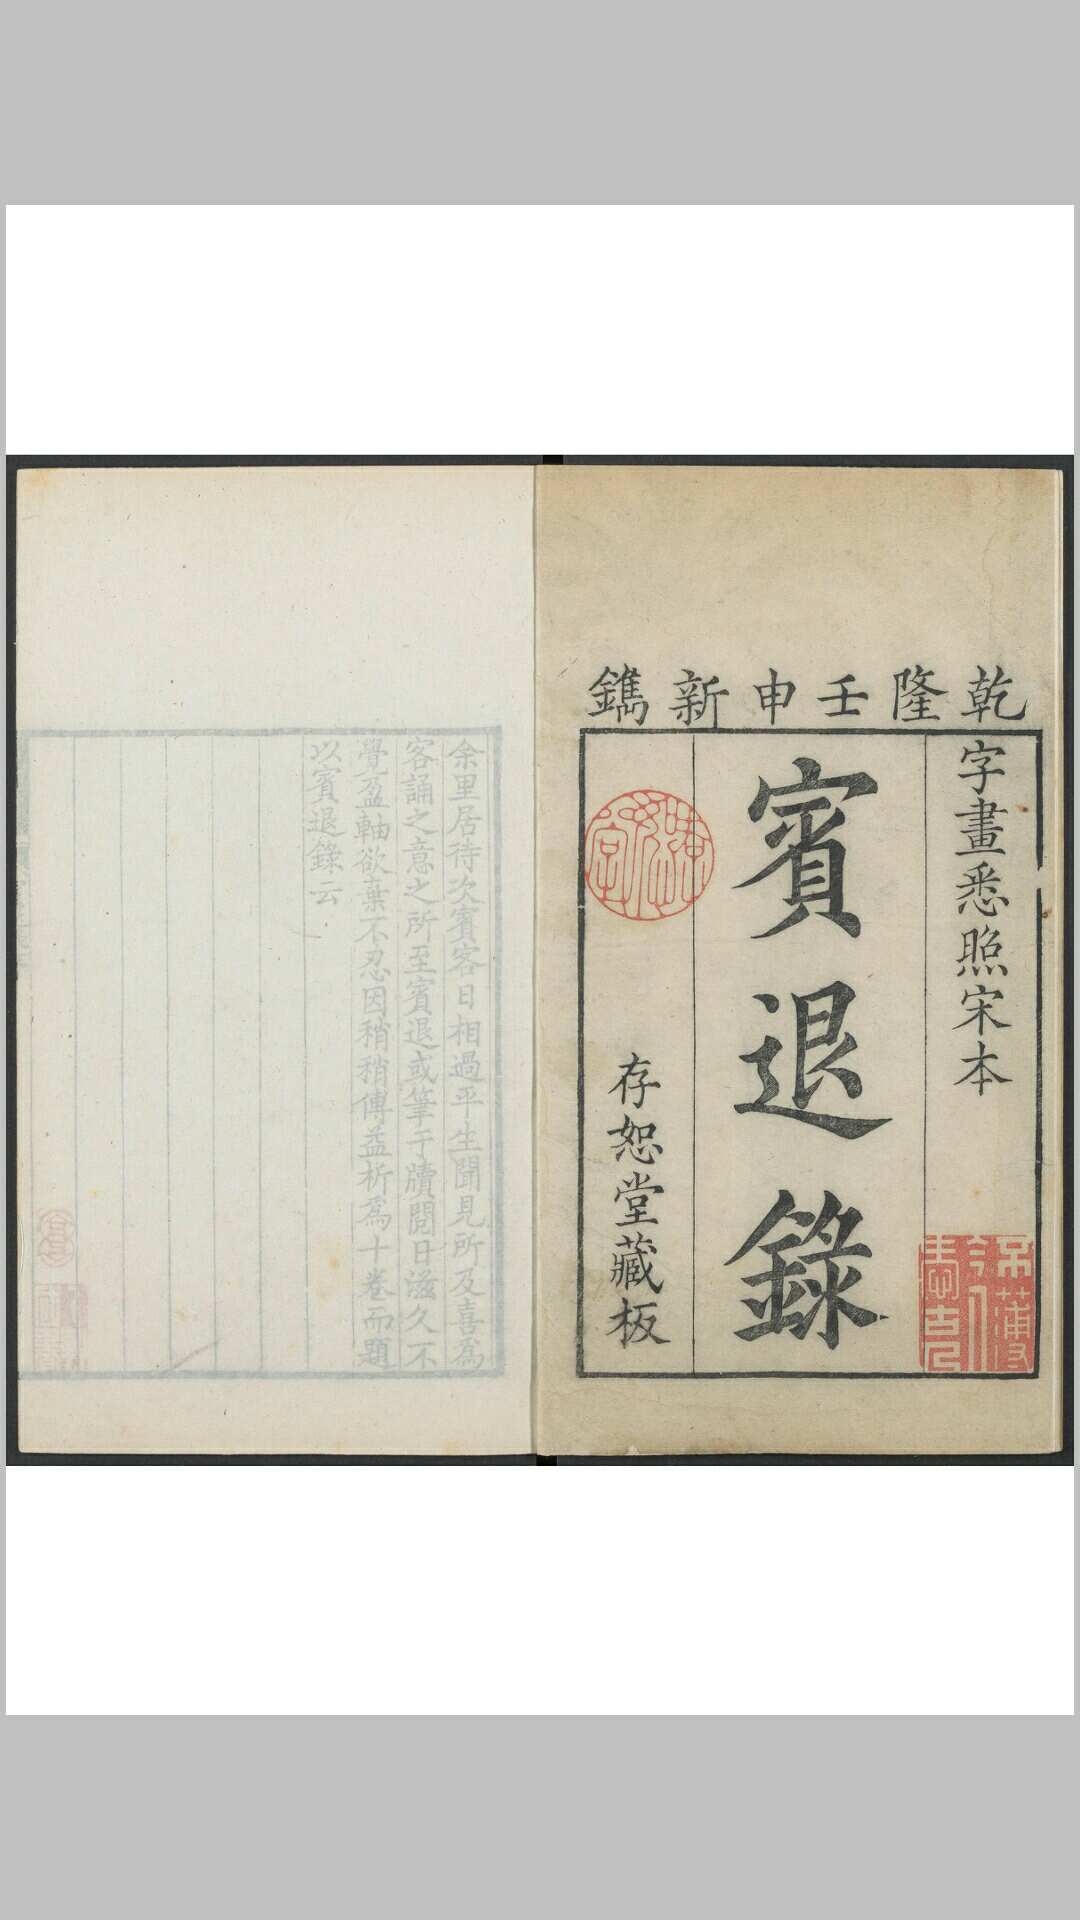 乾隆壬申新鐫
字畫悉照宋本
賓退錄
存恕堂藏板
余里居待次賓客日相過平生聞見所及喜爲
客誦之意之所至賓退或筆于牘閱日滋久不
覺盈軸欲棄不忍因稍稍傅益析爲十卷而題
以賓退錄云